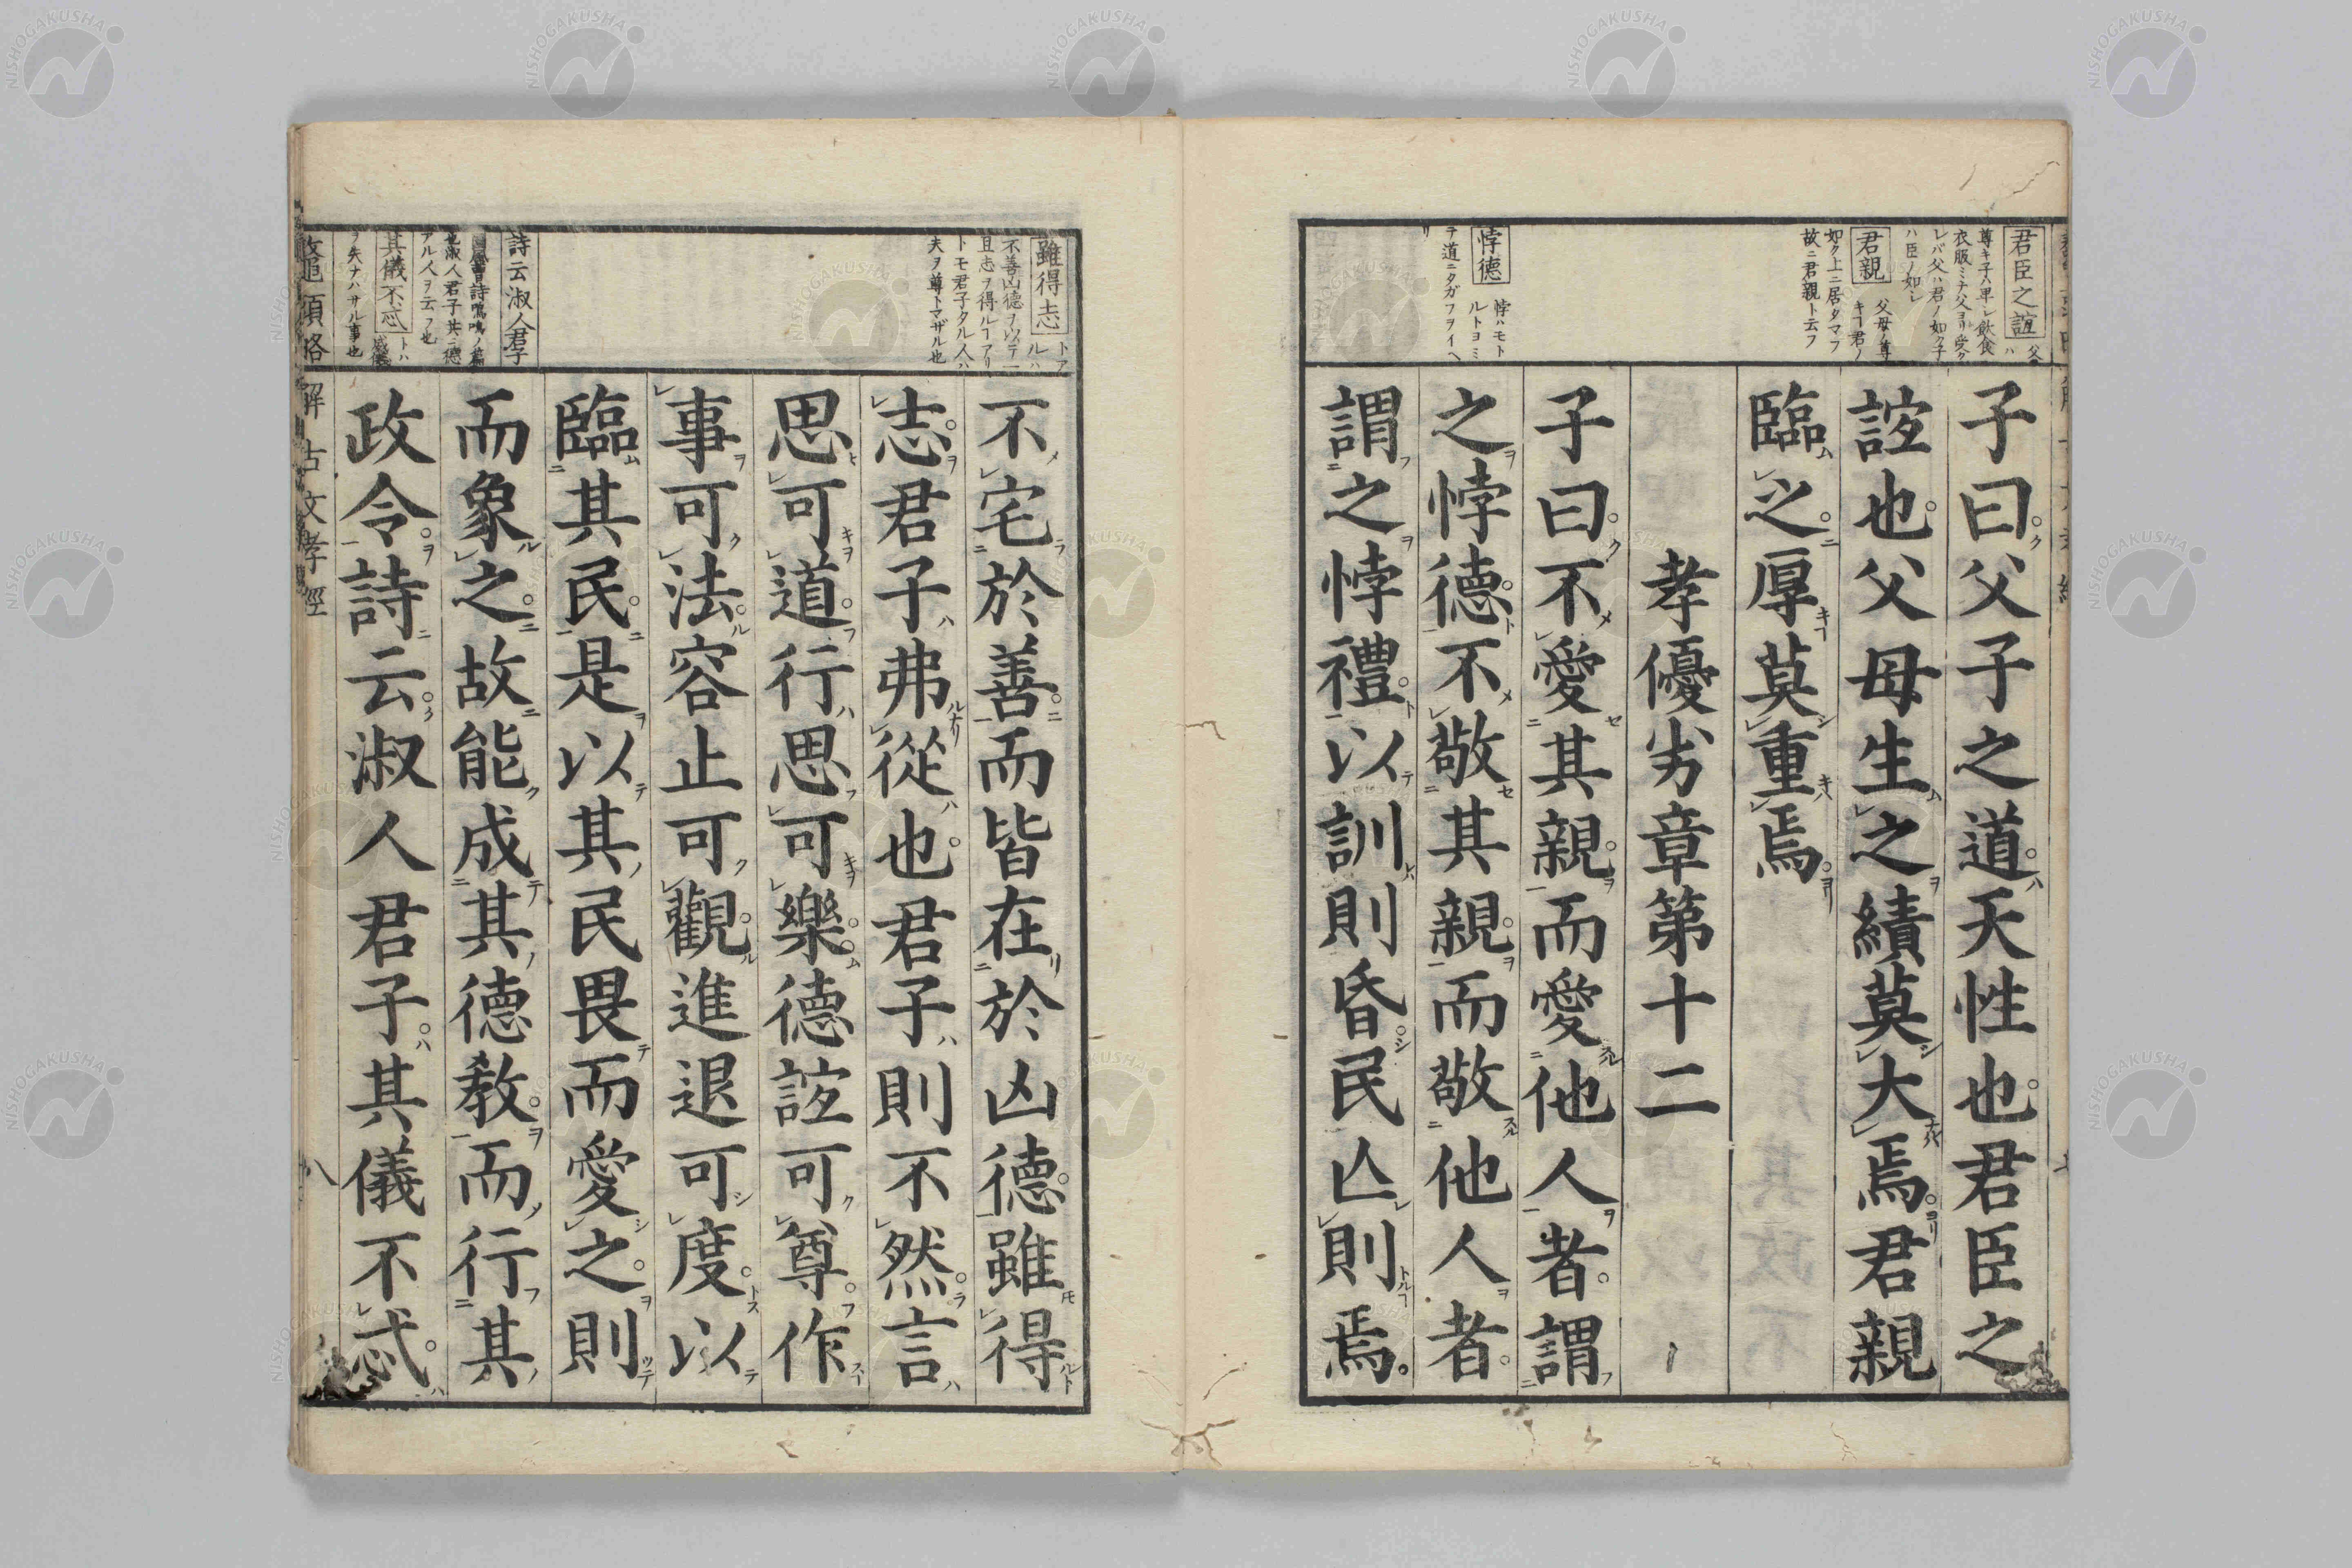 君臣之誼
尊キ子ハ卑シ飲食
衣服ミナ父ヨリ受ク
レバ父ハ君ノ如ク子
ハ臣ノ如シ
君親
父母ノ尊
キヿ君ノ
如ク上ニ居タマフ
故ニ君親ト云フ
悖德
悖ハモト
ルトヨミ
テ道ニタガフヲイヘ
リ
子曰父子之道天性也君臣之
誼也父母生之績莫大焉君親
臨之厚莫重焉
孝優劣章第十二
子曰不愛其親而愛他人者謂
之悖德不敬其親而敬他人者
謂之悖禮以訓則昏民亾則焉
雖得志
トア
ルハ
不善凶德ヲ以テ一
旦志ヲ得ルヿアリ
トモ君子タル人ハ
夫ヲ尊トマザル也
詩云淑人君子
也淑人君子共ニ德
アル人ヲ云フ也
其儀不忒
トハ
ヲ失ナハサル事也
不宅於善而皆在於凶德雖得
志君子弗從也君子則不然言
思可道行思可樂德誼可尊作
事可法容止可觀進退可度以
臨其民是以其民畏而愛之則
而象之故能成其德教而行其
政令詩云淑人君子其儀不忒
鼇頭略解古文孝經
八
NISHOGAKUSHA